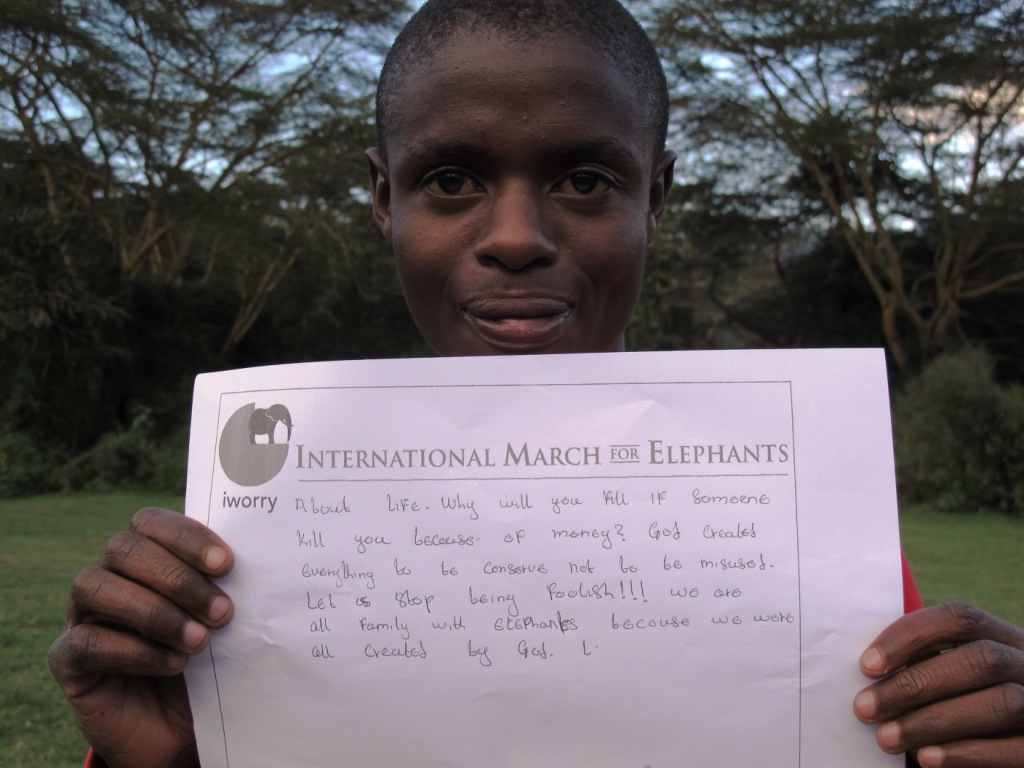 INTERNATIONAL MARCH FOR ELEPHANTS
iworry
About Life. Why will you kill if someone
kill you because of money? God created
everything to be conserve not to be misused.
Let us stop being foolish!!! we are
all family with elephants because we were
all created by God. L.